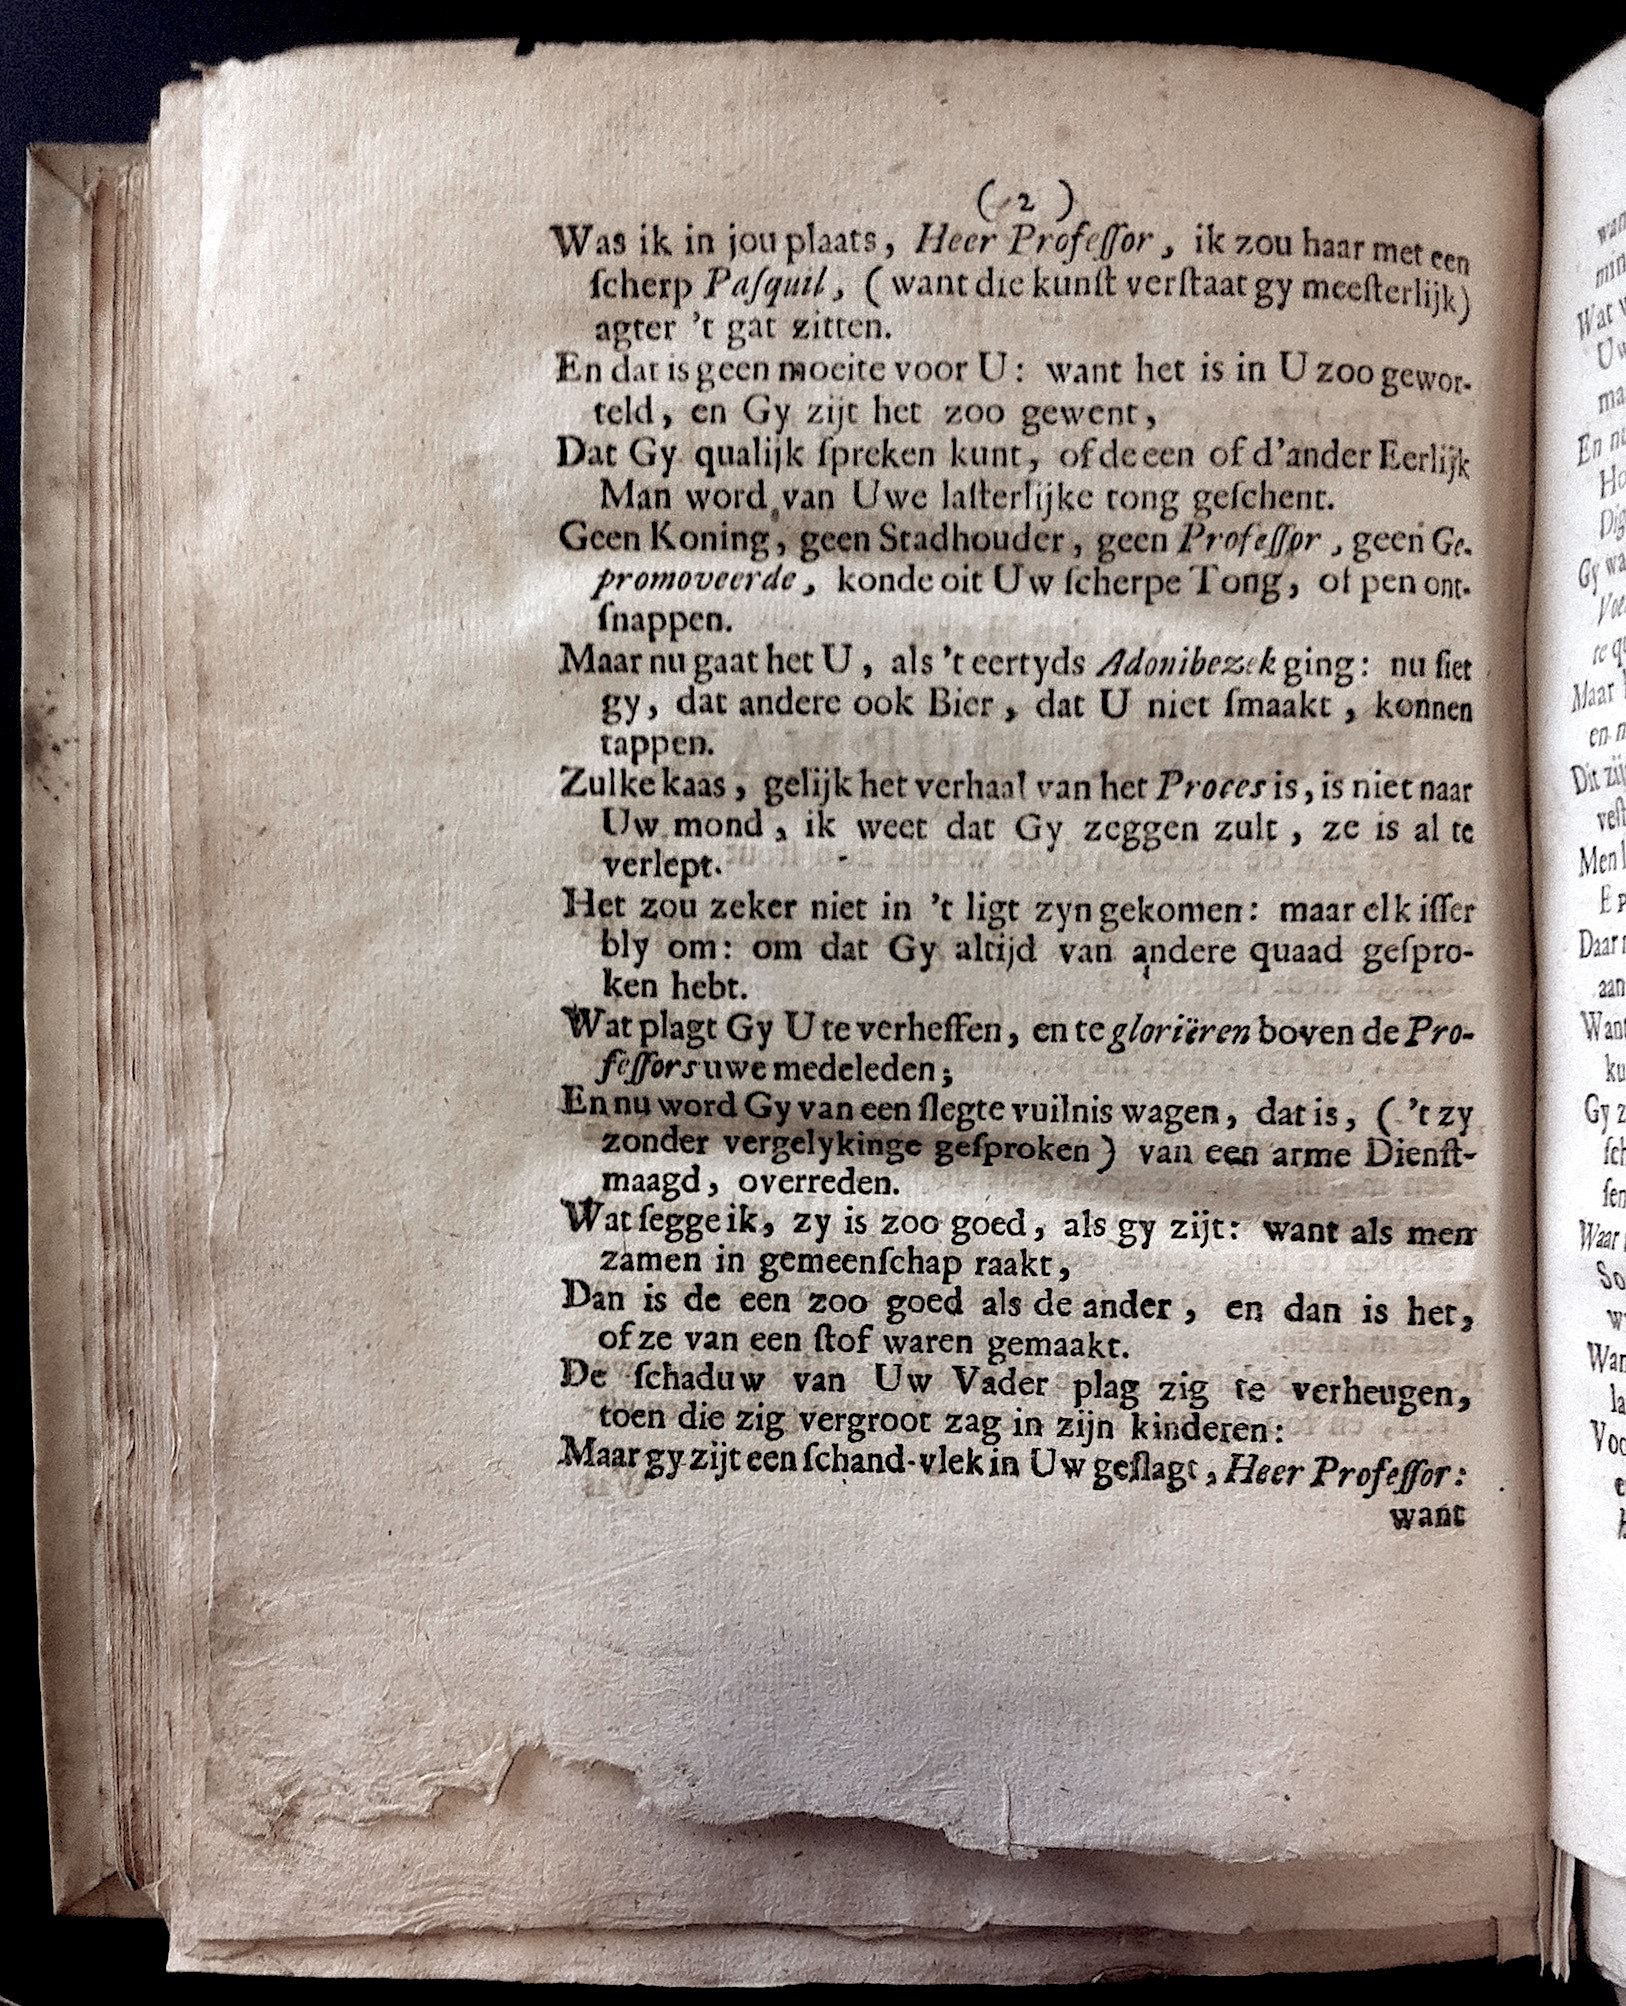 ( 2 )
Was ik in jou plaats, Heer Profeſſor, ik zou haar met een
ſcherp Paſquil, ( want die kunſt verſtaat gy meeſterlijk)
agter 't gat zitten.
En dat is geen moeite voor U: want het is in U zoo gewor-
teld, en Gy zijt het zoo gewent,
Dat Gy qualijk ſpreken kunt, of de een of d'ander Eerlijk
Man word van Uwe laſterlijke tong geſchent.
Geen Koning, geen Stadhouder, geen Profeſſor, geen Ge-
promoveerde, konde oit Uw ſcherpe Tong, of pen ont-
ſnappen.
Maar nu gaat het U, als 't eertyds Adonibezek ging: nu ſiet
gy, dat andere ook Bier, dat U niet ſmaakt, konnen
tappen.
Zulke kaas, gelijk het verhaal van het Proces is, is niet naar
Uw mond, ik weet dat Gy zeggen zult, ze is al te
verlept.
Het zou zeker niet in 't ligt zyn gekomen: maar elk iſſer
bly om: om dat Gy altijd van andere quaad geſpro-
ken hebt.
Wat plagt Gy U te verheffen, en te gloriëren boven de Pro-
feſſors uwe medeleden;
En nu word Gy van een ſlegte vuilnis wagen, dat is, ( 't zy
zonder vergelykinge geſproken) van een arme Dienſt-
maagd, overreden.
Wat ſegge ik, zy is zoo goed, als gy zijt: want als men
zamen in gemeenſchap raakt,
Dan is de een zoo goed als de ander, en dan is het,
of ze van een ſtof waren gemaakt.
De ſchaduw van Uw Vader plag zig te verheugen,
toen die zig vergroot zag in zijn kinderen:
Maar gy zijt een ſchand-vlek in Uw geſlagt, Heer Profeſſor:
want